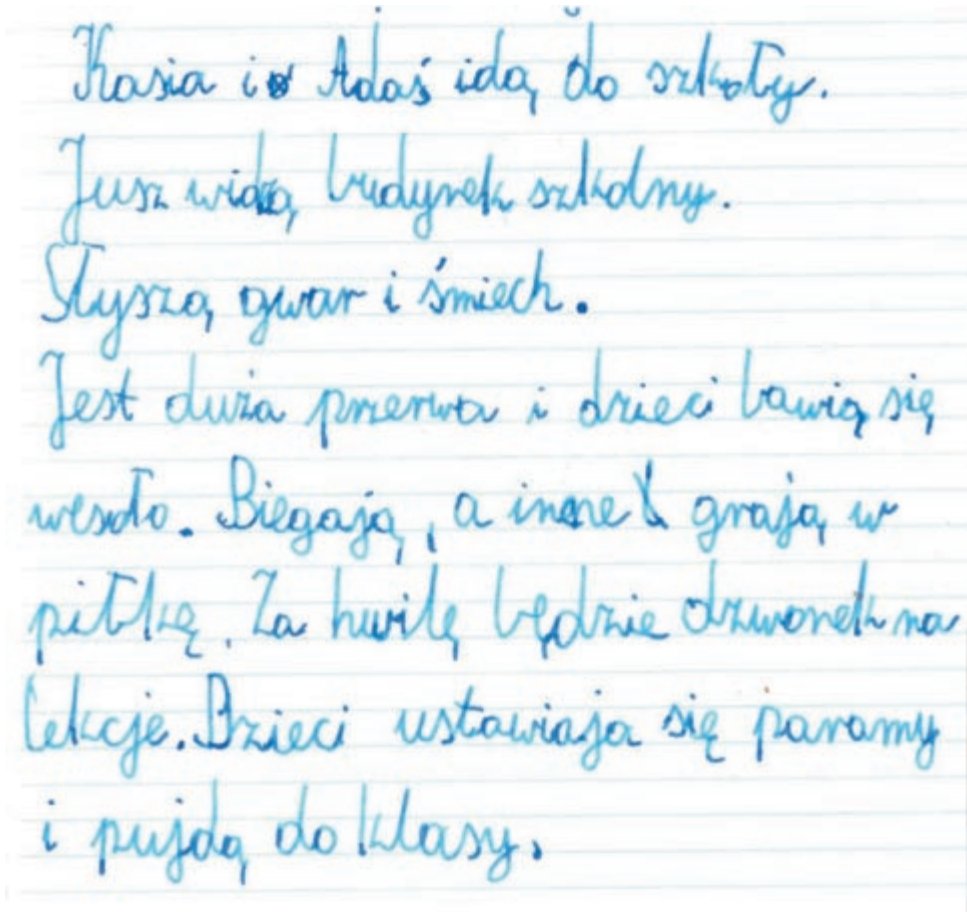 Kasia i Adaś idą do szkoły.
Jusz widzą budynek szkolny.
Słyszą gwar i śmiech.
Jest duża przerwa i dzieci bawią się
wesoło. Biegają, a inne grają w
piłkę. Za hwilę będzie dzwonek na
lekcje. Dzieci ustawiaja się paramy
i pujdą do klasy.